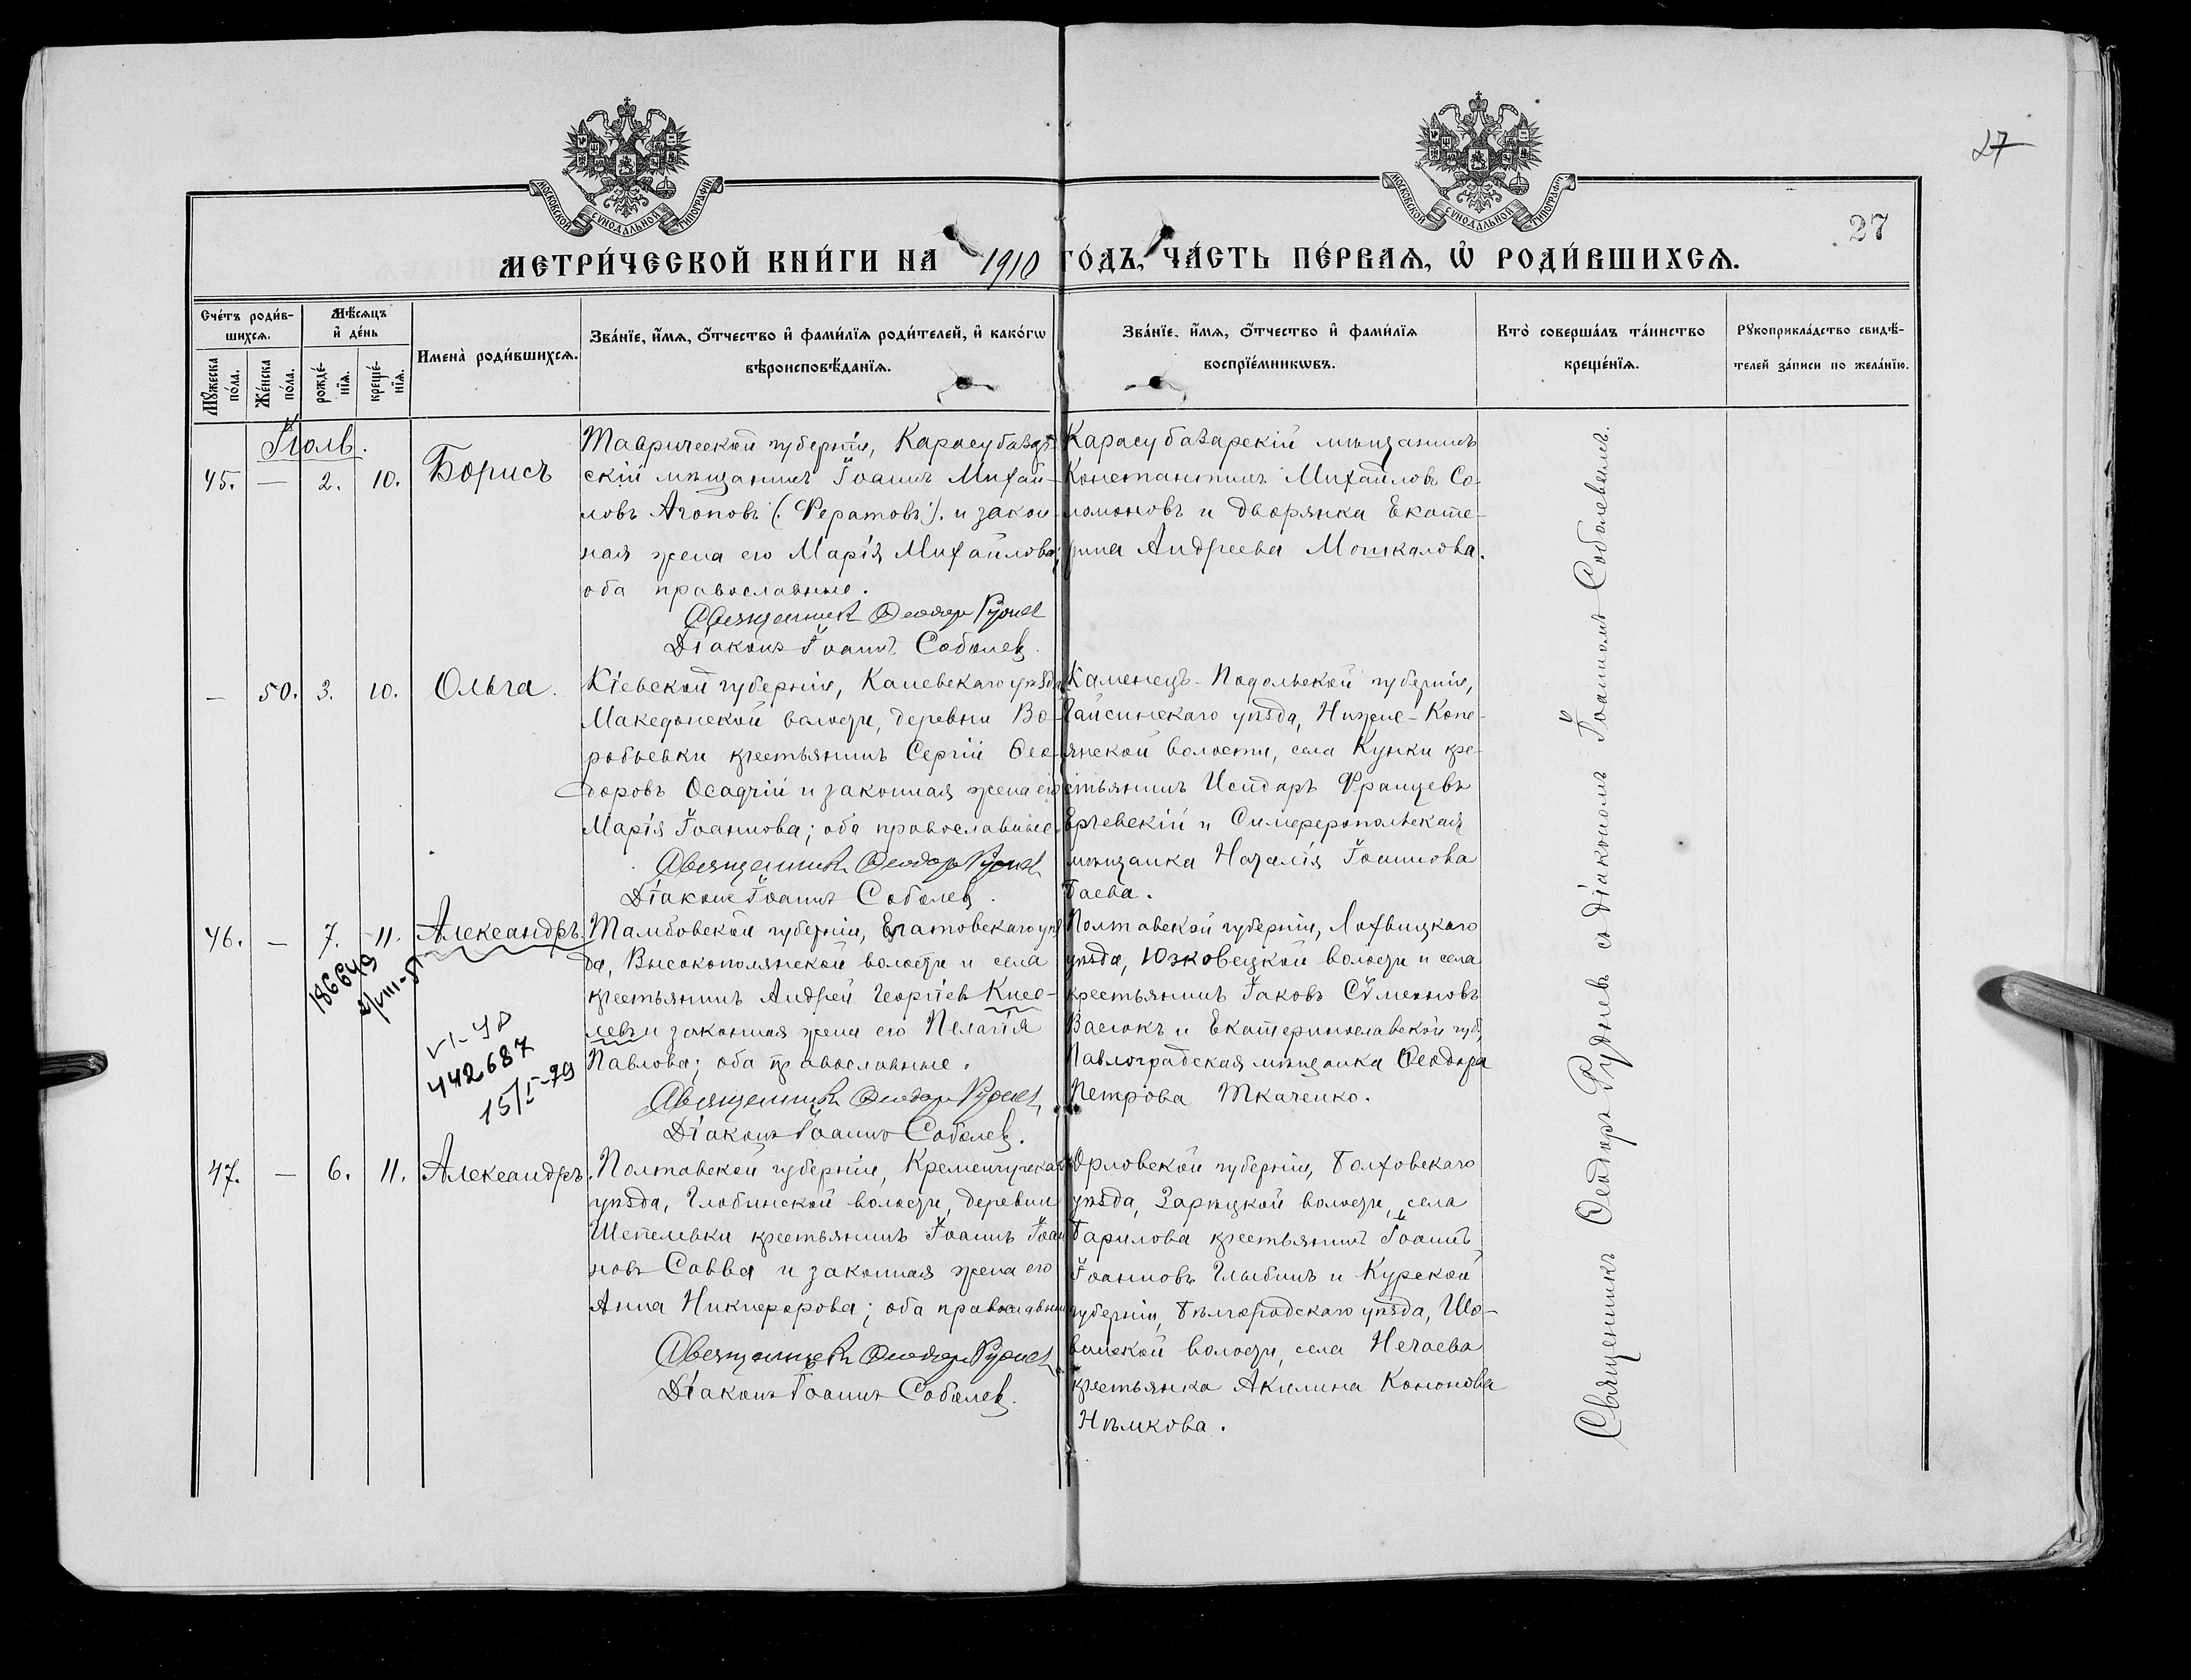 27
27
МОСКОВСКОЙ СѴНОДАЛЬНОЙ ТИПОГРАФІИ
МОСКОВСКОЙ СѴНОДАЛЬНОЙ ТИПОГРАФІИ
МЕТРИ́ЧЕСКОЙ КНИ́ГИ НА 1910 ГО́ДЪ, ЧА́СТЬ ПЕ́РВАѦ, Ѡ҆ РОДИ́ВШИХСѦ.
Сче́тъ роди́в-
шихсѧ.
Мꙋ́жеска по́ла.
Же́нска по́ла.
Мѣ́сѧцъ
и҆ де́нь
рожде́-
нїѧ.
креще́-
нїѧ.
Имена̀ роди́вшихсѧ.
Зва́нїе, и҆́мѧ, ѻ҆́тчество и҆ фами́лїѧ роди́телей, и҆ како́гѡ
вѣроисповѣ́данїѧ.
Зва́нїе, и҆́мѧ, ѻ҆́тчество и҆ фами́лїѧ
воспрїе́мникѡвъ.
Кто̀ соверша́лъ та́инство
креще́нїѧ.
Рꙋкоприкла́дство свидѣ́-
телей за́писи по жела́нїю.
Іюль.
45. — 2. 10. Борисъ
Таврической губерніи, Карасубазар-
скій мѣщанинъ Іоаннъ Михай-
ловъ Агоповъ (Фератовъ) и закон-
ная жена его Марія Михайлова;
оба православные.
Священникъ Ѳеодоръ Рудневъ
Діаконъ Іоаннъ Соболевъ.
Карасубазарскій мѣщанинъ
Константинъ Михайловъ Со-
ломоновъ и дворянка Екате-
рина Андреева Мошкалова.
— 50. 3. 10. Ольга.
Кіевской губерніи, Каневскаго уѣзда
Македонской волости, деревни Во-
робьевки крестьянинъ Сергій Ѳео-
доровъ Осадчій и законная жена его
Марія Іоаннова; оба православные.
Священникъ Ѳеодоръ Рудневъ
Діаконъ Іоаннъ Соболевъ.
Каменецъ-Подольской губерніи,
Гайсинскаго уѣзда, Ниже-Кропи-
янской волости, села Кунки кре-
стьянинъ Исидоръ Францевъ
мѣщанка Наталія Іоаннова
Баева.
46. — 7. 11. Александръ.
186649
VI-48
442687
15/I-79
Тамбовской губерніи, Елатомскаго уѣз-
да, Высокополянской волости и села
крестьянинъ Андрей Георгіевъ Кисе-
левъ и законная жена его Пелагія
Павлова; оба православные.
Священникъ Ѳеодоръ Рудневъ
Діаконъ Іоаннъ Соболевъ.
Полтавской губерніи, Лохвицкаго
уѣзда, Юзковецкой волости и села
крестьянинъ Іаковъ Сѵмеоновъ
Васюкъ и Екатеринославской губ.,
Павлоградская мѣщанка Ѳеодора
Петрова Ткаченко.
47. — 6. 11. Александръ.
Полтавской губерніи, Кременчугскаго
уѣзда, Глобинской волости, деревни
Шепелевки крестьянинъ Іоаннъ Іоан-
новъ Савва и законная жена его
Анна Никифорова; оба православные
Священникъ Ѳеодоръ Рудневъ
Діаконъ Іоаннъ Соболевъ.
Орловской губерніи, Болховскаго
уѣзда, Зарѣцкой волости, села
Гарилова крестьянинъ Іоаннъ
Іоанновъ Глыбинъ и Курской
губерніи, Бѣлгородскаго уѣзда, Шо-
винской волости, села Нечаева
крестьянка Акилина Кононова
Нѣмкова.
Священникъ Ѳеодоръ Рудневъ съ діакономъ Іоанномъ Соболевымъ.